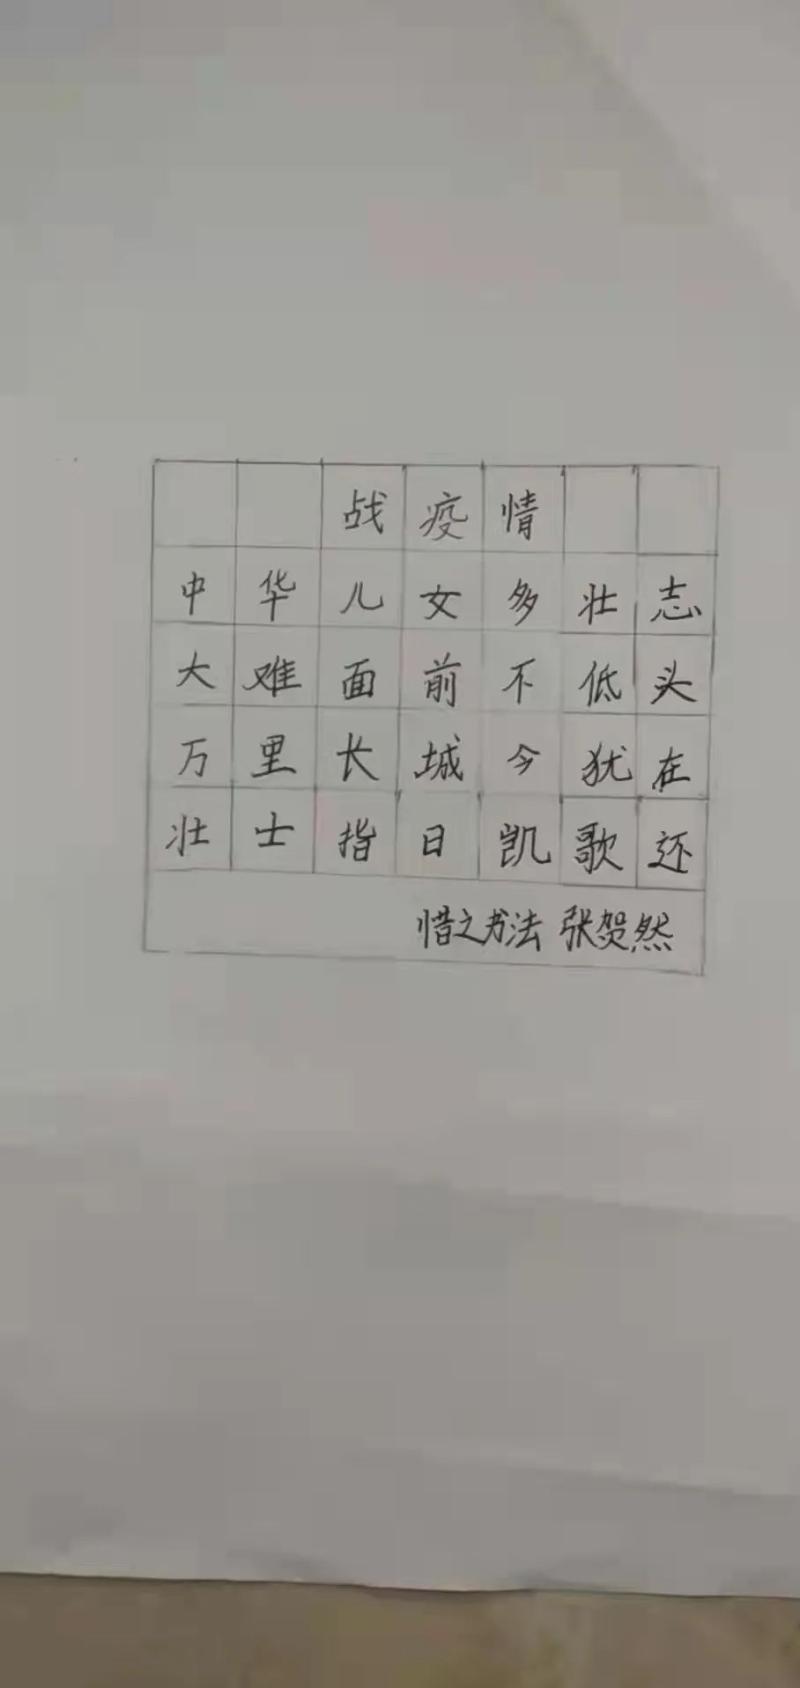 战疫情
中华儿女多壮志
大难面前不低头
万里长城今犹在
壮士指日凯歌还
惜之书法 张贺然